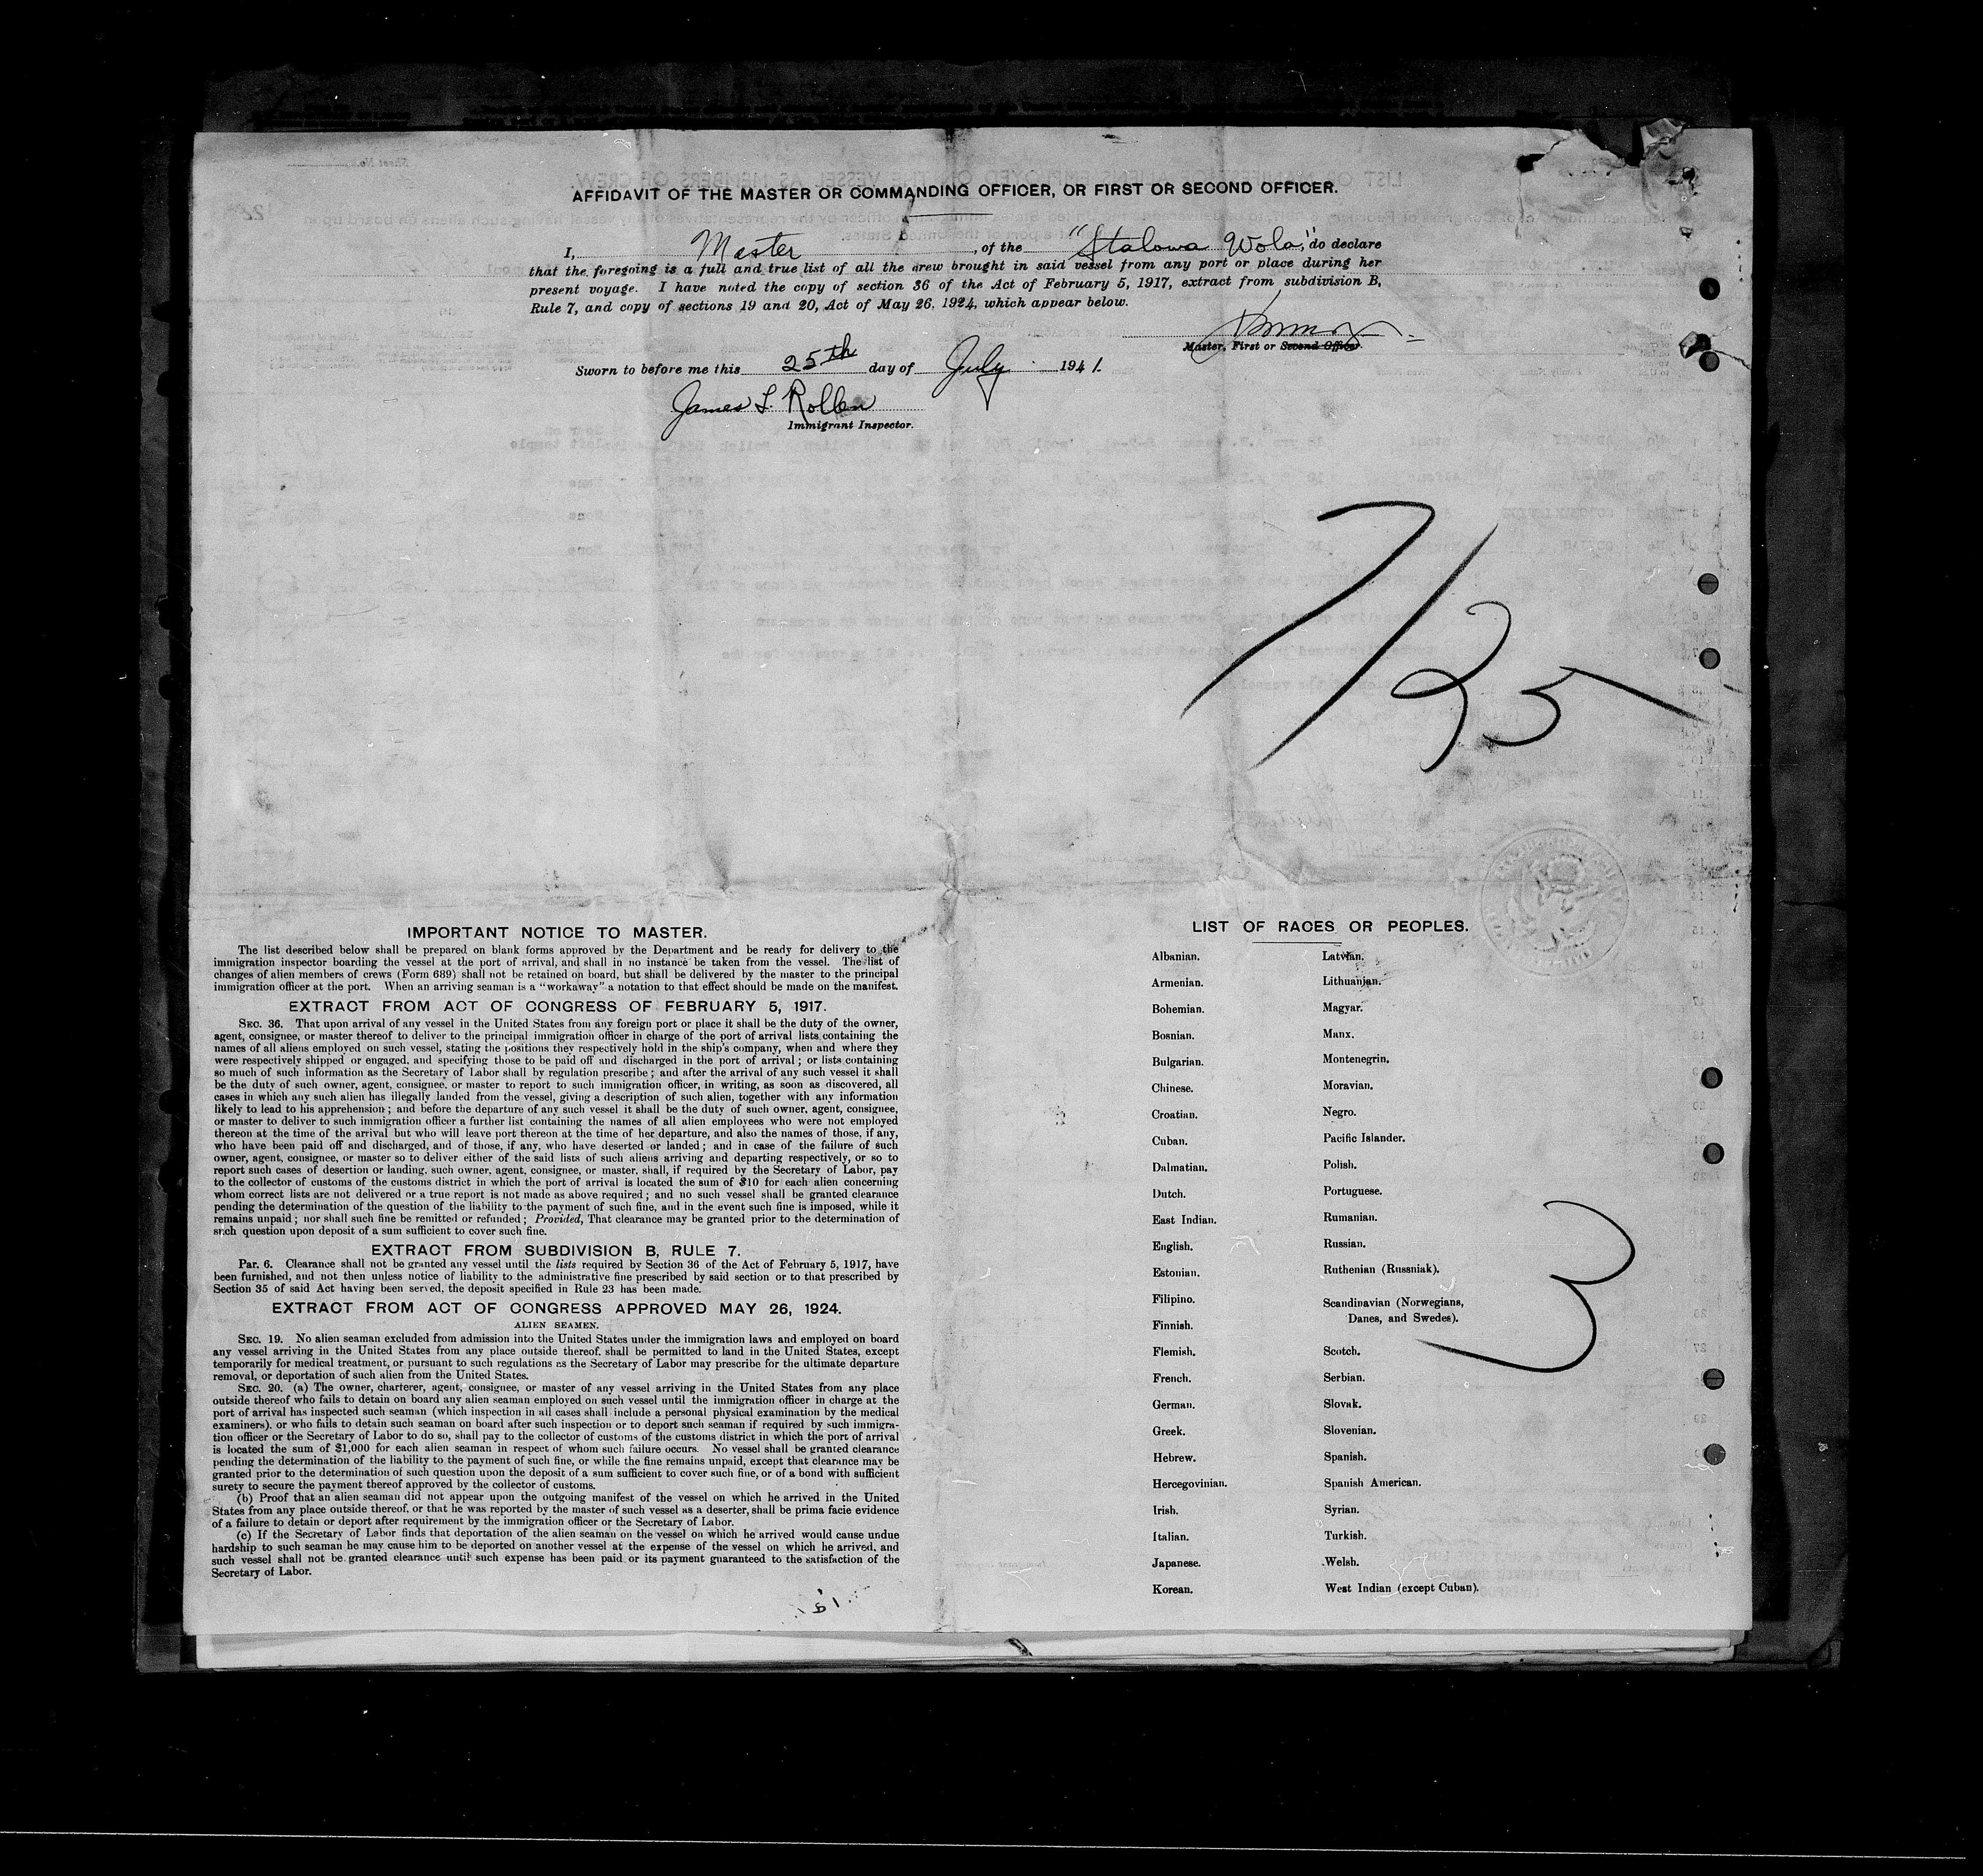 AFFIDAVIT OF THE MASTER OR COMMANDING OFFICER, OR FIRST OR SECOND OFFICER.
I, Master, of the "Stalowa Wola," do declare
that the foregoing is a full and true list of all the crew brought in said vessel from any port or place during her
present voyage. I have noted the copy of section 36 of the Act of February 5, 1917, extract from subdivision B,
Rule 7, and copy of sections 19 and 20, Act of May 26, 1924, which appear below.
Master, First or Second Officer.
Sworn to before me this 25th day of July 1941.
James L. Rollen
Immigrant Inspector.
7/25
IMPORTANT NOTICE TO MASTER.
The list described below shall be prepared on blank forms approved by the Department and be ready for delivery to the
immigration inspector boarding the vessel at the port of arrival, and shall in no instance be taken from the vessel. The list of
changes of alien members of crews (Form 689) shall not be retained on board, but shall be delivered by the master to the principal
immigration officer at the port. When an arriving seaman is a "workaway" a notation to that effect should be made on the manifest.
EXTRACT FROM ACT OF CONGRESS OF FEBRUARY 5, 1917.
SEC. 36. That upon arrival of any vessel in the United States from any foreign port or place it shall be the duty of the owner,
agent, consignee, or master thereof to deliver to the principal immigration officer in charge of the port of arrival lists containing the
names of all aliens employed on such vessel, stating the positions they respectively hold in the ship's company, when and where they
were respectively shipped or engaged, and specifying those to be paid off and discharged in the port of arrival; or lists containing
so much of such information as the Secretary of Labor shall by regulation prescribe; and after the arrival of any such vessel it shall
be the duty of such owner, agent, consignee, or master to report to such immigration officer, in writing, as soon as discovered, all
cases in which any such alien has illegally landed from the vessel, giving a description of such alien, together with any information
likely to lead to his apprehension; and before the departure of any such vessel it shall be the duty of such owner, agent, consignee,
or master to deliver to such immigration officer a further list containing the names of all alien employees who were not employed
thereon at the time of the arrival but who will leave port thereon at the time of her departure, and also the names of those, if any,
who have been paid off and discharged, and of those, if any, who have deserted or landed; and in case of the failure of such
owner, agent, consignee, or master so to deliver either of the said lists of such aliens arriving and departing respectively, or so to
report such cases of desertion or landing, such owner, agent, consignee, or master, shall, if required by the Secretary of Labor, pay
to the collector of customs of the customs district in which the port of arrival is located the sum of $10 for each alien concerning
whom correct lists are not delivered or a true report is not made as above required; and no such vessel shall be granted clearance
pending the determination of the question of the liability to the payment of such fine, and in the event such fine is imposed, while it
remains unpaid; nor shall such fine be remitted or refunded; Provided, That clearance may be granted prior to the determination of
such question upon deposit of a sum sufficient to cover such fine.
EXTRACT FROM SUBDIVISION B, RULE 7.
Par. 6. Clearance shall not be granted any vessel until the lists required by Section 36 of the Act of February 5, 1917, have
been furnished, and not then unless notice of liability to the administrative fine prescribed by said section or to that prescribed by
Section 35 of said Act having been served, the deposit specified in Rule 23 has been made.
EXTRACT FROM ACT OF CONGRESS APPROVED MAY 26, 1924.
ALIEN SEAMEN.
SEC. 19. No alien seaman excluded from admission into the United States under the immigration laws and employed on board
any vessel arriving in the United States from any place outside thereof, shall be permitted to land in the United States, except
temporarily for medical treatment, or pursuant to such regulations as the Secretary of Labor may prescribe for the ultimate departure
removal, or deportation of such alien from the United States.
SEC. 20. (a) The owner, charterer, agent, consignee, or master of any vessel arriving in the United States from any place
outside thereof who fails to detain on board any alien seaman employed on such vessel until the immigration officer in charge at the
port of arrival has inspected such seaman (which inspection in all cases shall include a personal physical examination by the medical
examiners), or who fails to detain such seaman on board after such inspection or to deport such seaman if required by such immigra-
tion officer or the Secretary of Labor to do so, shall pay to the collector of customs of the customs district in which the port of arrival
is located the sum of $1,000 for each alien seaman in respect of whom such failure occurs. No vessel shall be granted clearance
pending the determination of the liability to the payment of such fine, or while the fine remains unpaid, except that clearance may be
granted prior to the determination of such question upon the deposit of a sum sufficient to cover such fine, or of a bond with sufficient
surety to secure the payment thereof approved by the collector of customs.
(b) Proof that an alien seaman did not appear upon the outgoing manifest of the vessel on which he arrived in the United
States from any place outside thereof, or that he was reported by the master of such vessel as a deserter, shall be prima facie evidence
of a failure to detain or deport after requirement by the immigration officer or the Secretary of Labor.
(c) If the Secretary of Labor finds that deportation of the alien seaman on the vessel on which he arrived would cause undue
hardship to such seaman he may cause him to be deported on another vessel at the expense of the vessel on which he arrived, and
such vessel shall not be granted clearance until such expense has been paid or its payment guaranteed to the satisfaction of the
Secretary of Labor.
LIST OF RACES OR PEOPLES.
Albanian.
Armenian.
Bohemian.
Bosnian.
Bulgarian.
Chinese.
Croatian.
Cuban.
Dalmatian.
Dutch.
East Indian.
English.
Estonian.
Filipino.
Finnish.
Flemish.
French.
German.
Greek.
Hebrew.
Hercegovinian.
Irish.
Italian.
Japanese.
Korean.
Latvian.
Lithuanian.
Magyar.
Manx.
Montenegrin.
Moravian.
Negro.
Pacific Islander.
Polish.
Portuguese.
Rumanian.
Russian.
Ruthenian (Russniak).
Scandinavian (Norwegians,
Danes, and Swedes).
Scotch.
Serbian.
Slovak.
Slovenian.
Spanish.
Spanish American.
Syrian.
Turkish.
Welsh.
West Indian (except Cuban).
3